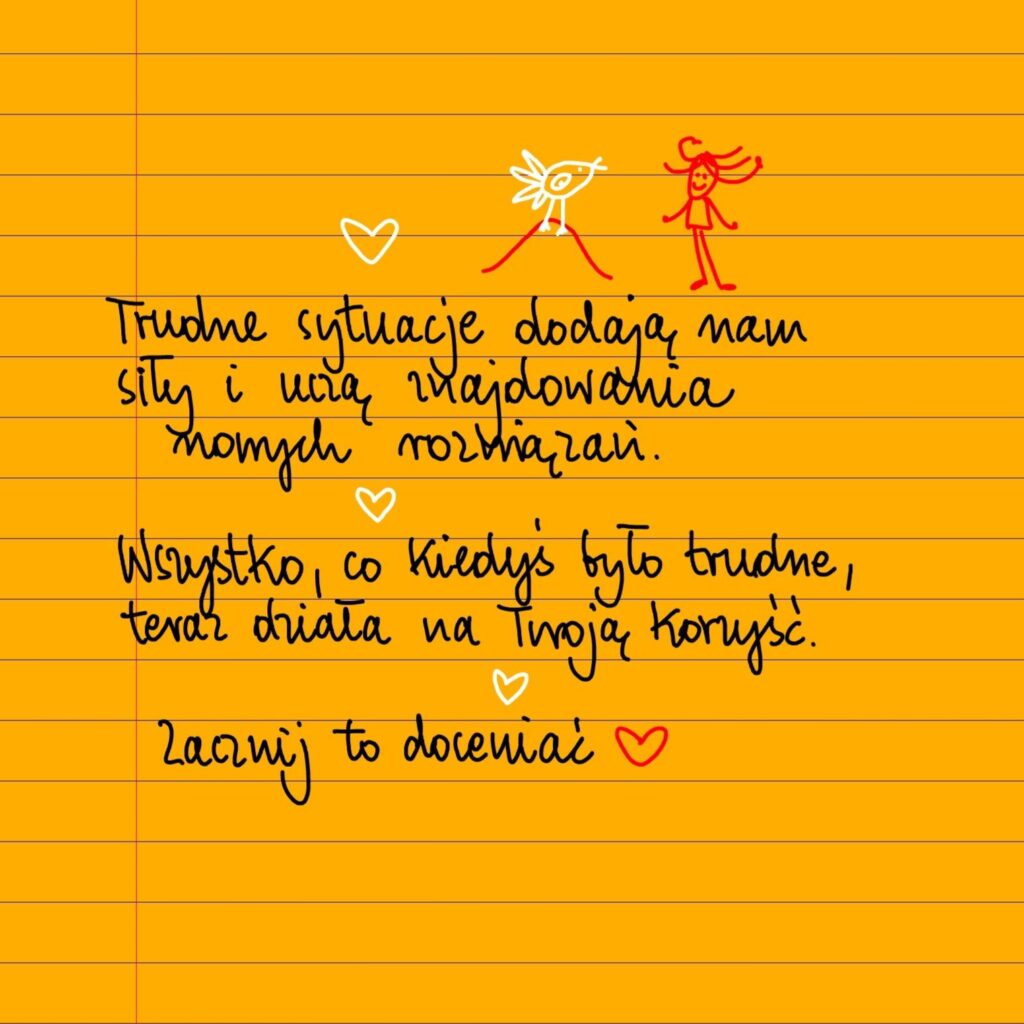 Trudne sytuacje dodają nam
siły i uczą znajdowania
nowych rozwiązań.
Wszystko, co kiedyś było trudne,
teraz działa na Twoją korzyść.
Zacznij to doceniać